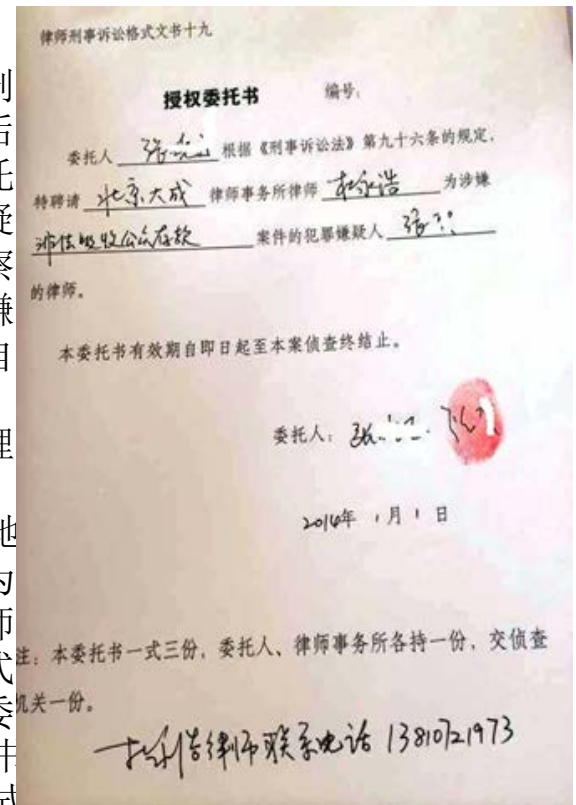 律师刑事诉讼格式文书十九
授权委托书 编号:
委托人 张 根据《刑事诉讼法》第九十六条的规定,
特聘请 北京大成 律师事务所律师 杜永浩 为涉嫌
非法吸收公众存款 案件的犯罪嫌疑人 张
的律师。
本委托书有效期自即日起至本案侦查终结止。
委托人: 张
2014年 1月 1 日
注: 本委托书一式三份, 委托人、律师事务所各持一份, 交侦查
机关一份。
杜永浩律师联系电话 13810721973